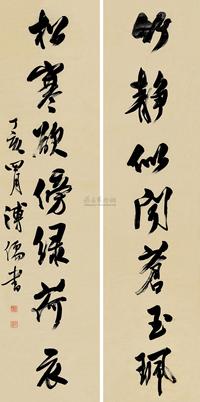 竹静似闻苍玉珮
松寒欲傍绿荷衣
丁亥四月溥儒書